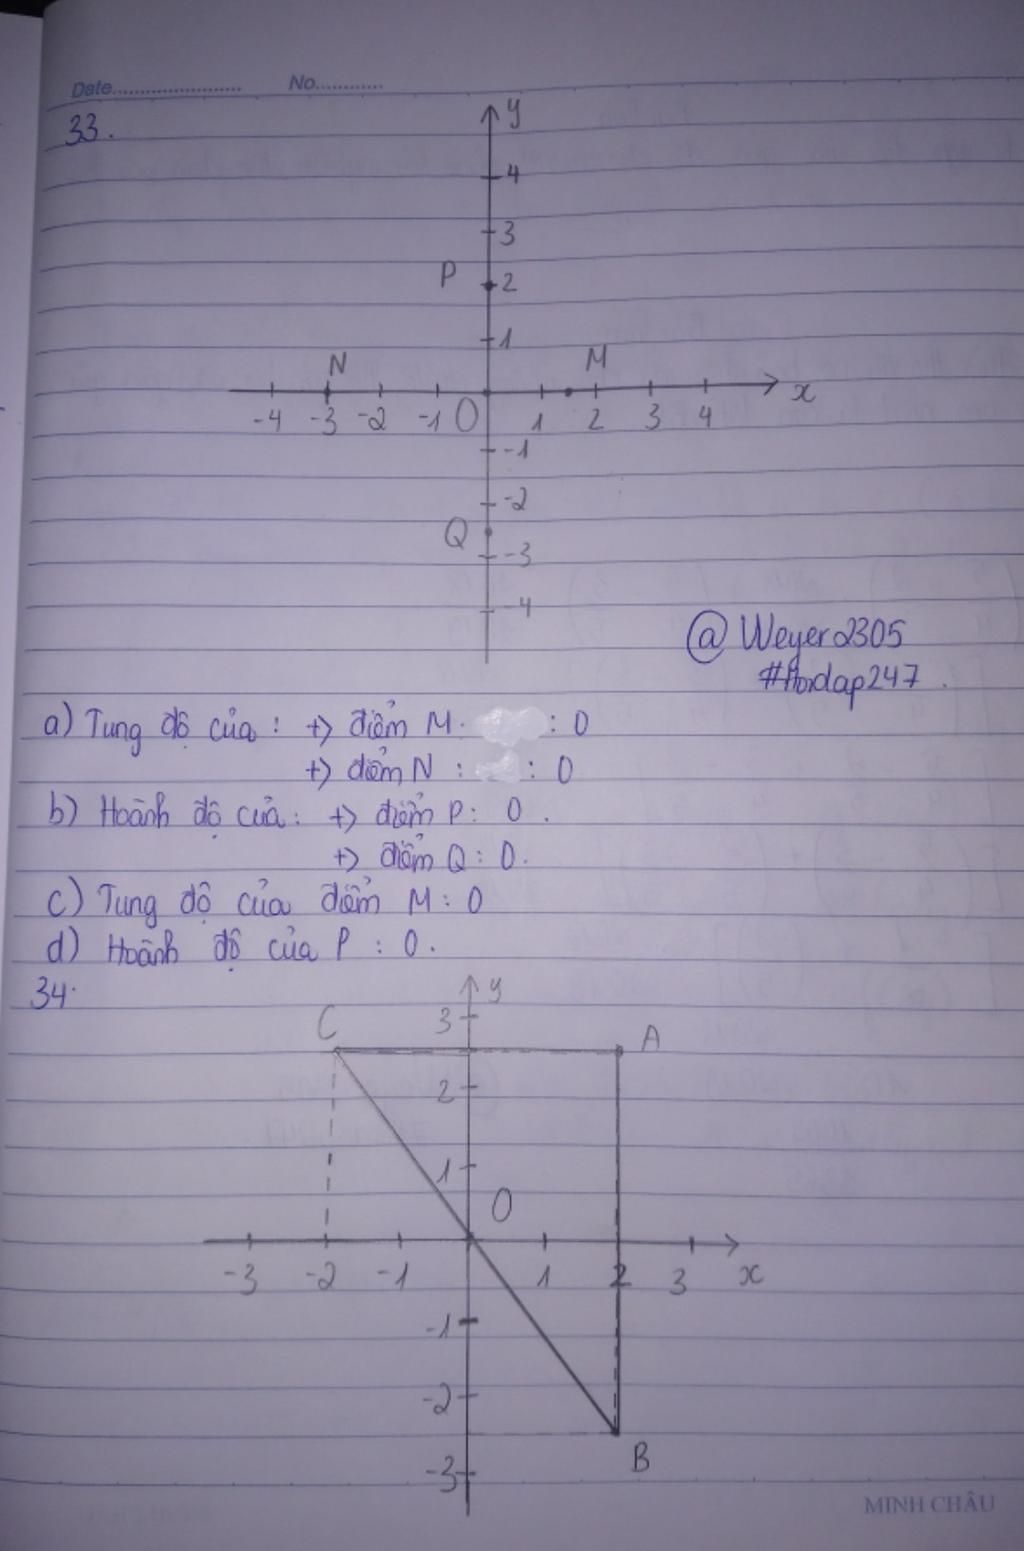 Date.................... No............
33.
y
4
3
P 2
1
N M
-4 -3 -2 -1 O 1 2 3 4 x
-1
-2
Q
-3
-4
@ Weyer2305
#Hoidap247.
a) Tung độ của : +> điểm M. : 0
+> điểm N : : 0
b) Hoành độ của : +> điểm P : 0.
+> điểm Q : 0.
c) Tung độ của điểm M : 0
d) Hoành độ của P : 0.
34.
y
C 3 A
2
1
O
-3 -2 -1 1 2 3 x
-1
-2
B
-3
MINH CHÂU